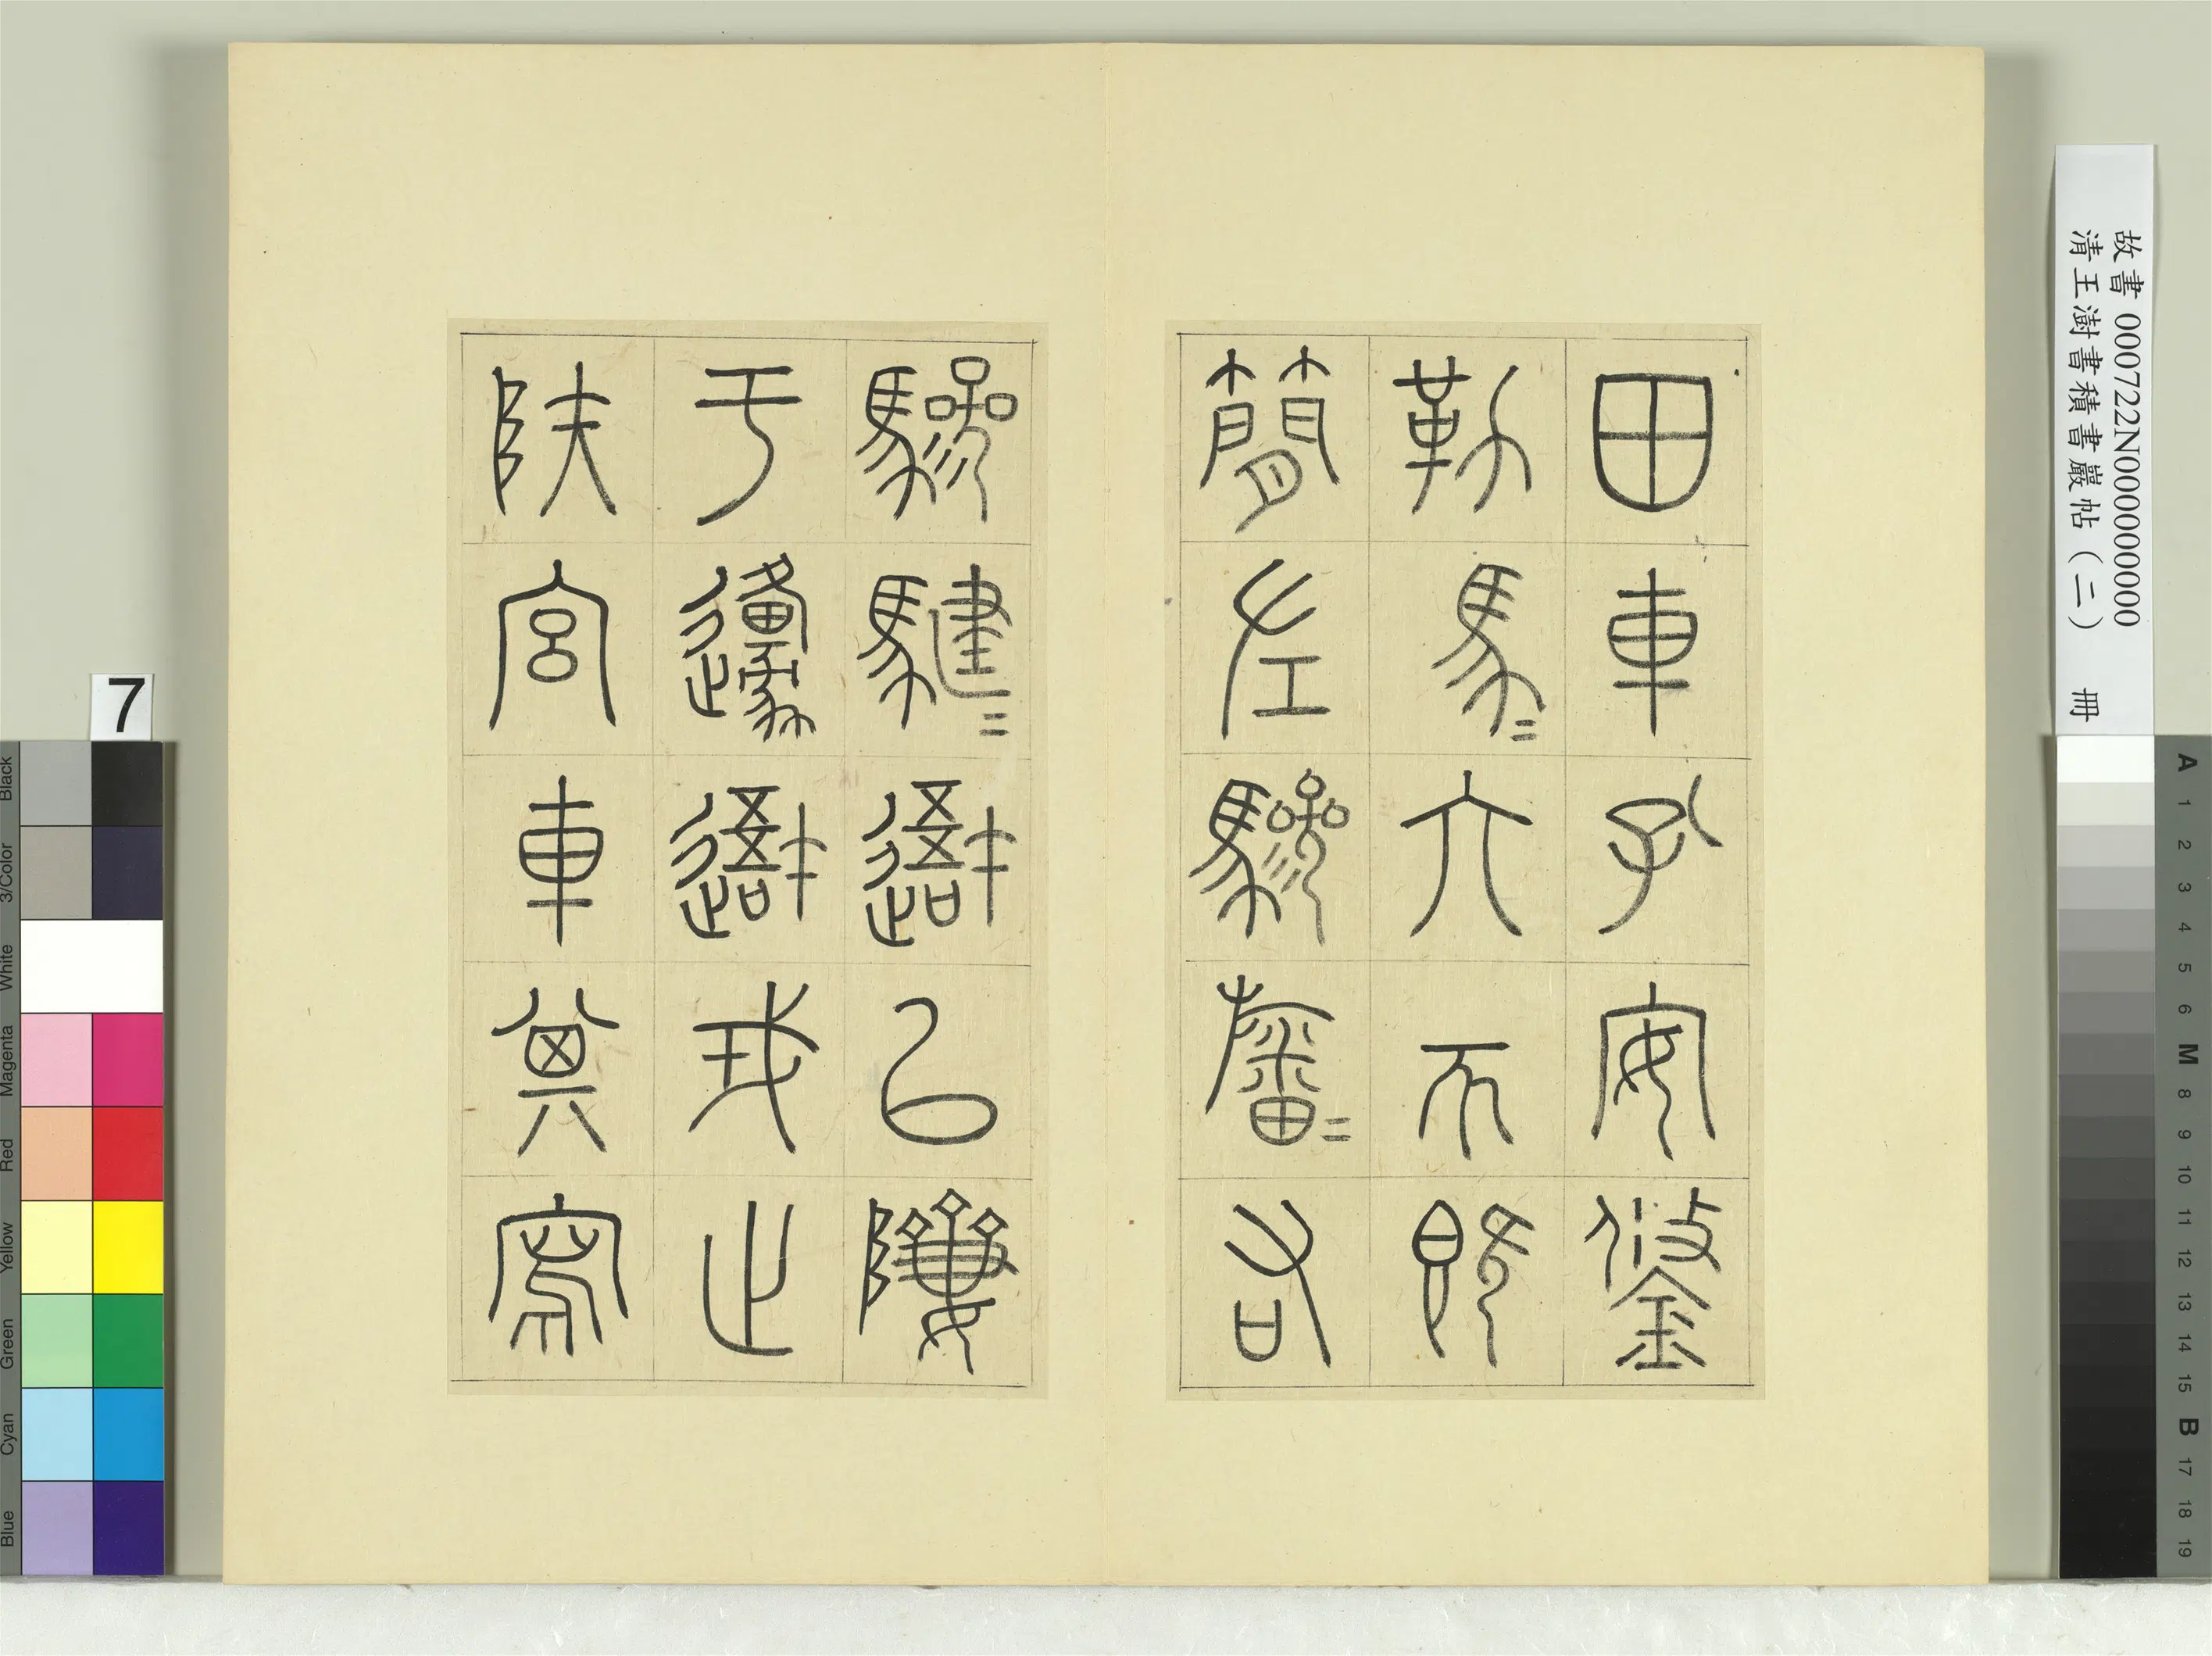 田車孔安鋚
勒馬=六既
簡左驂旛=右
驂騝=避㠯隮
于邍避戎止
陕宮車其寫
故書 000722N000000000
清王澍書積書巖帖(二) 冊
7
Black
3/Color
White
Magenta
Red
Yellow
Green
Cyan
Blue
A
1
2
3
4
5
6
M
8
9
10
11
12
13
14
15
B
17
18
19